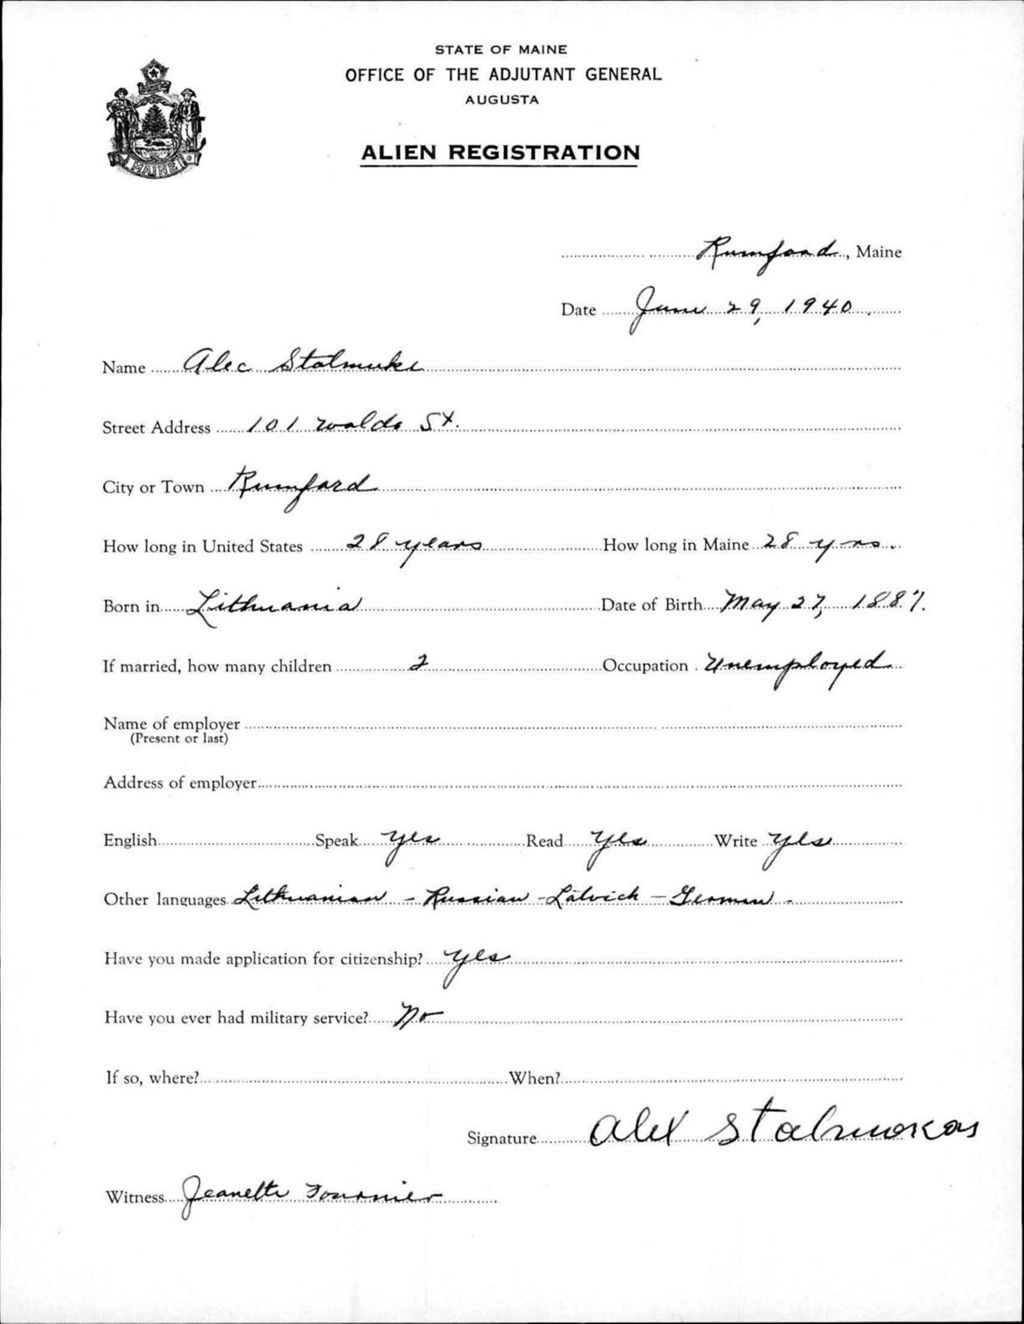 STATE OF MAINE
OFFICE OF THE ADJUTANT GENERAL
AUGUSTA
ALIEN REGISTRATION
MAINE
Rumford, Maine
Date June 29, 1940.
Name Alec Stalmuke
Street Address 101 Waldo St.
City or Town Rumford
How long in United States 28 years How long in Maine 28 yrs.
Born in Lithuania Date of Birth May 27, 1887.
If married, how many children 2 Occupation Unemployed
Name of employer
(Present or last)
Address of employer
English Speak yes Read yes Write yes
Other languages Lithuanian - Russian - Latvich - German.
Have you made application for citizenship? yes
Have you ever had military service? No
If so, where? When?
Signature Alex
Witness Jeanette Fournier